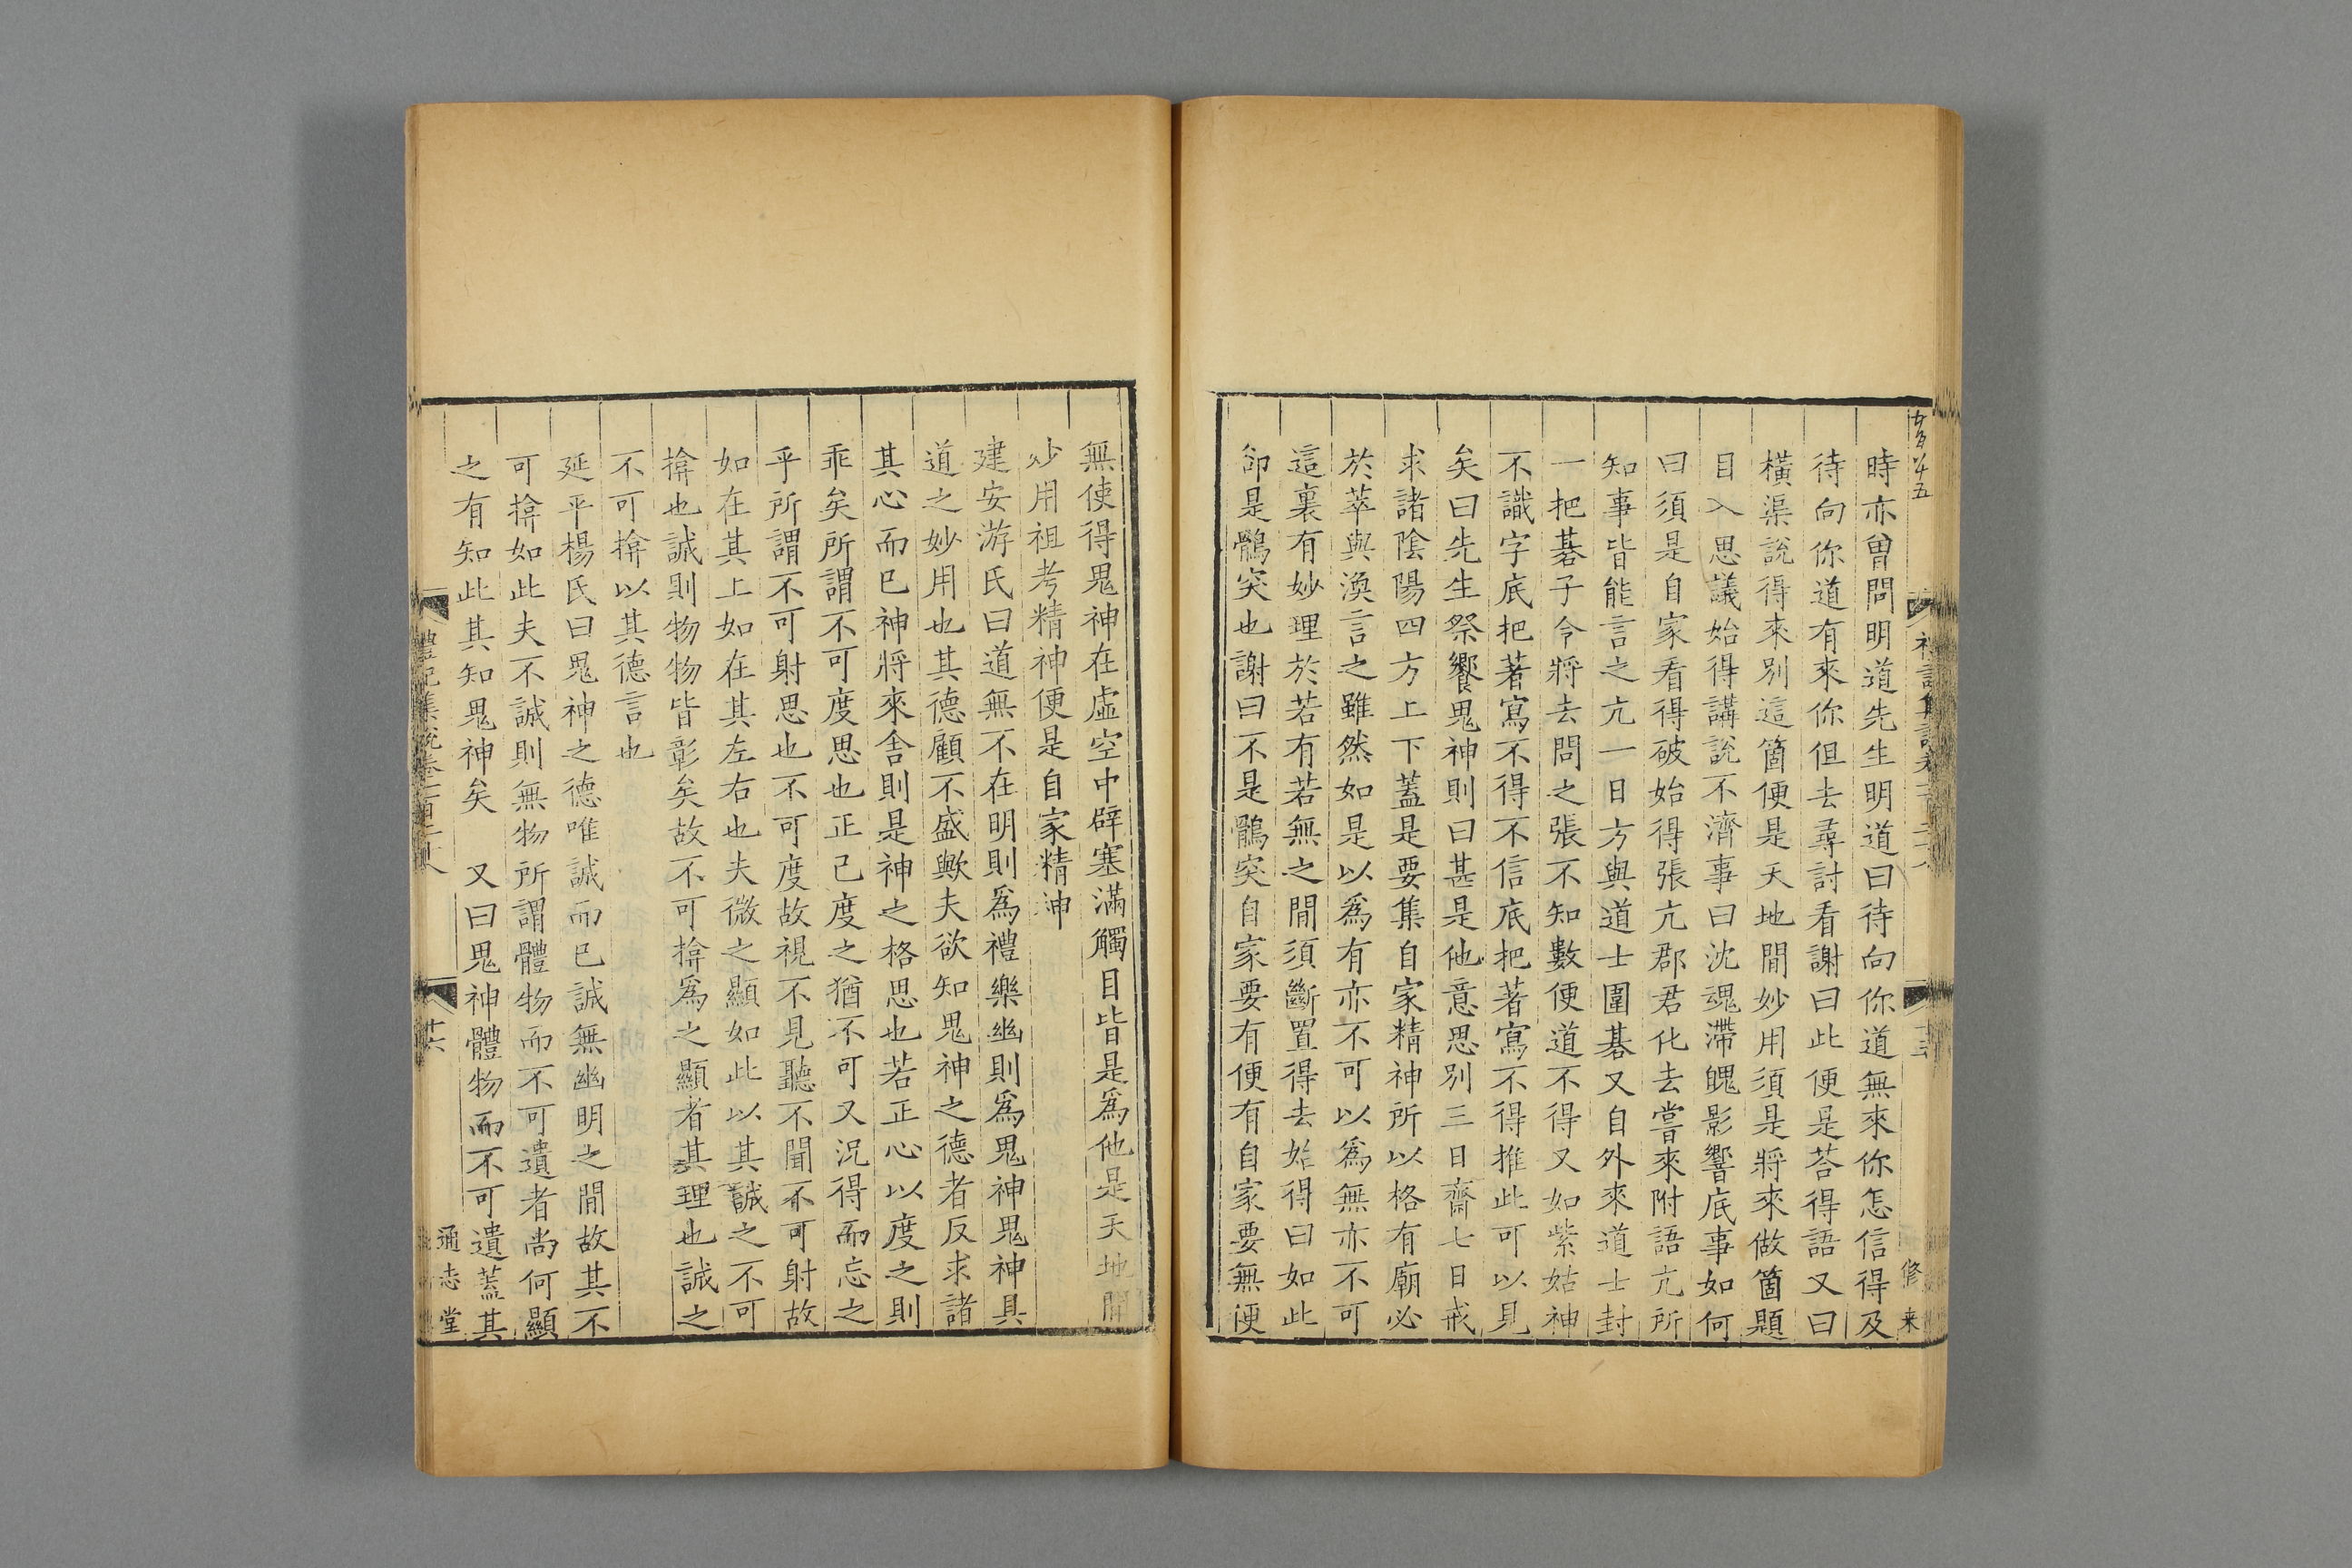 時亦曾問明道先生明道曰待向你道無來你怎信得及
待向你道有來你但去尋討看謝曰此便是荅得語又曰
橫渠說得來別這箇便是天地間妙用須是將來做箇題
目入思議始得講說不濟事曰沈魂滯魄影響底事如何
曰須是自家看得破始得張亢郡君化去嘗來附語亢所
知事皆能言之亢一日方與道士圍碁又自外來道士封
一把碁子令將去問之張不知數便道不得又如紫姑神
不識字底把著寫不得不信底把著寫不得推此可以見
矣曰先生祭饗鬼神則曰甚是他意思別三日齋七日戒
求諸陰陽四方上下蓋是要集自家精神所以格有廟必
於萃與渙言之雖然如是以爲有亦不可以爲無亦不可
這裏有妙理於若有若無之間須斷置得去始得曰如此
卻是鶻突也謝曰不是鶻突自家要有便有自家要無便
無使得鬼神在虛空中辟塞滿觸目皆是爲他是天地間
妙用祖考精神便是自家精神
建安游氏曰道無不在明則爲禮樂幽則爲鬼神鬼神具
道之妙用也其德顧不盛歟夫欲知鬼神之德者反求諸
其心而已神將來舍則是神之格思也若正心以度之則
乖矣所謂不可度思也正己度之猶不可又況得而忘之
乎所謂不可射思也不可度故視不見聽不聞不可射故
如在其上如在其左右也夫微之顯如此以其誠之不可
揜也誠則物物皆彰矣故不可揜爲之顯者其理也誠之
不可揜以其德言也
延平楊氏曰鬼神之德唯誠而已誠無幽明之間故其不
可揜如此夫不誠則無物所謂體物而不可遺者尚何顯
之有知此其知鬼神矣　又曰鬼神體物而不可遺蓋其
禮記集說卷一百二十八
十六
通志堂